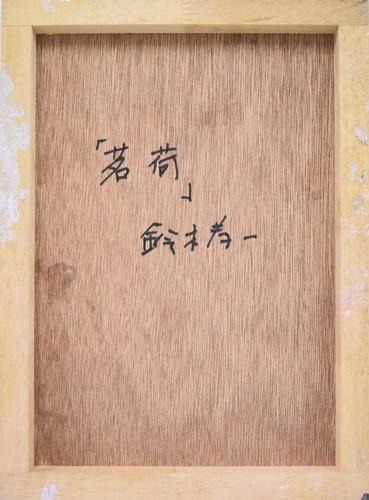 「茗荷」
鈴木寿一